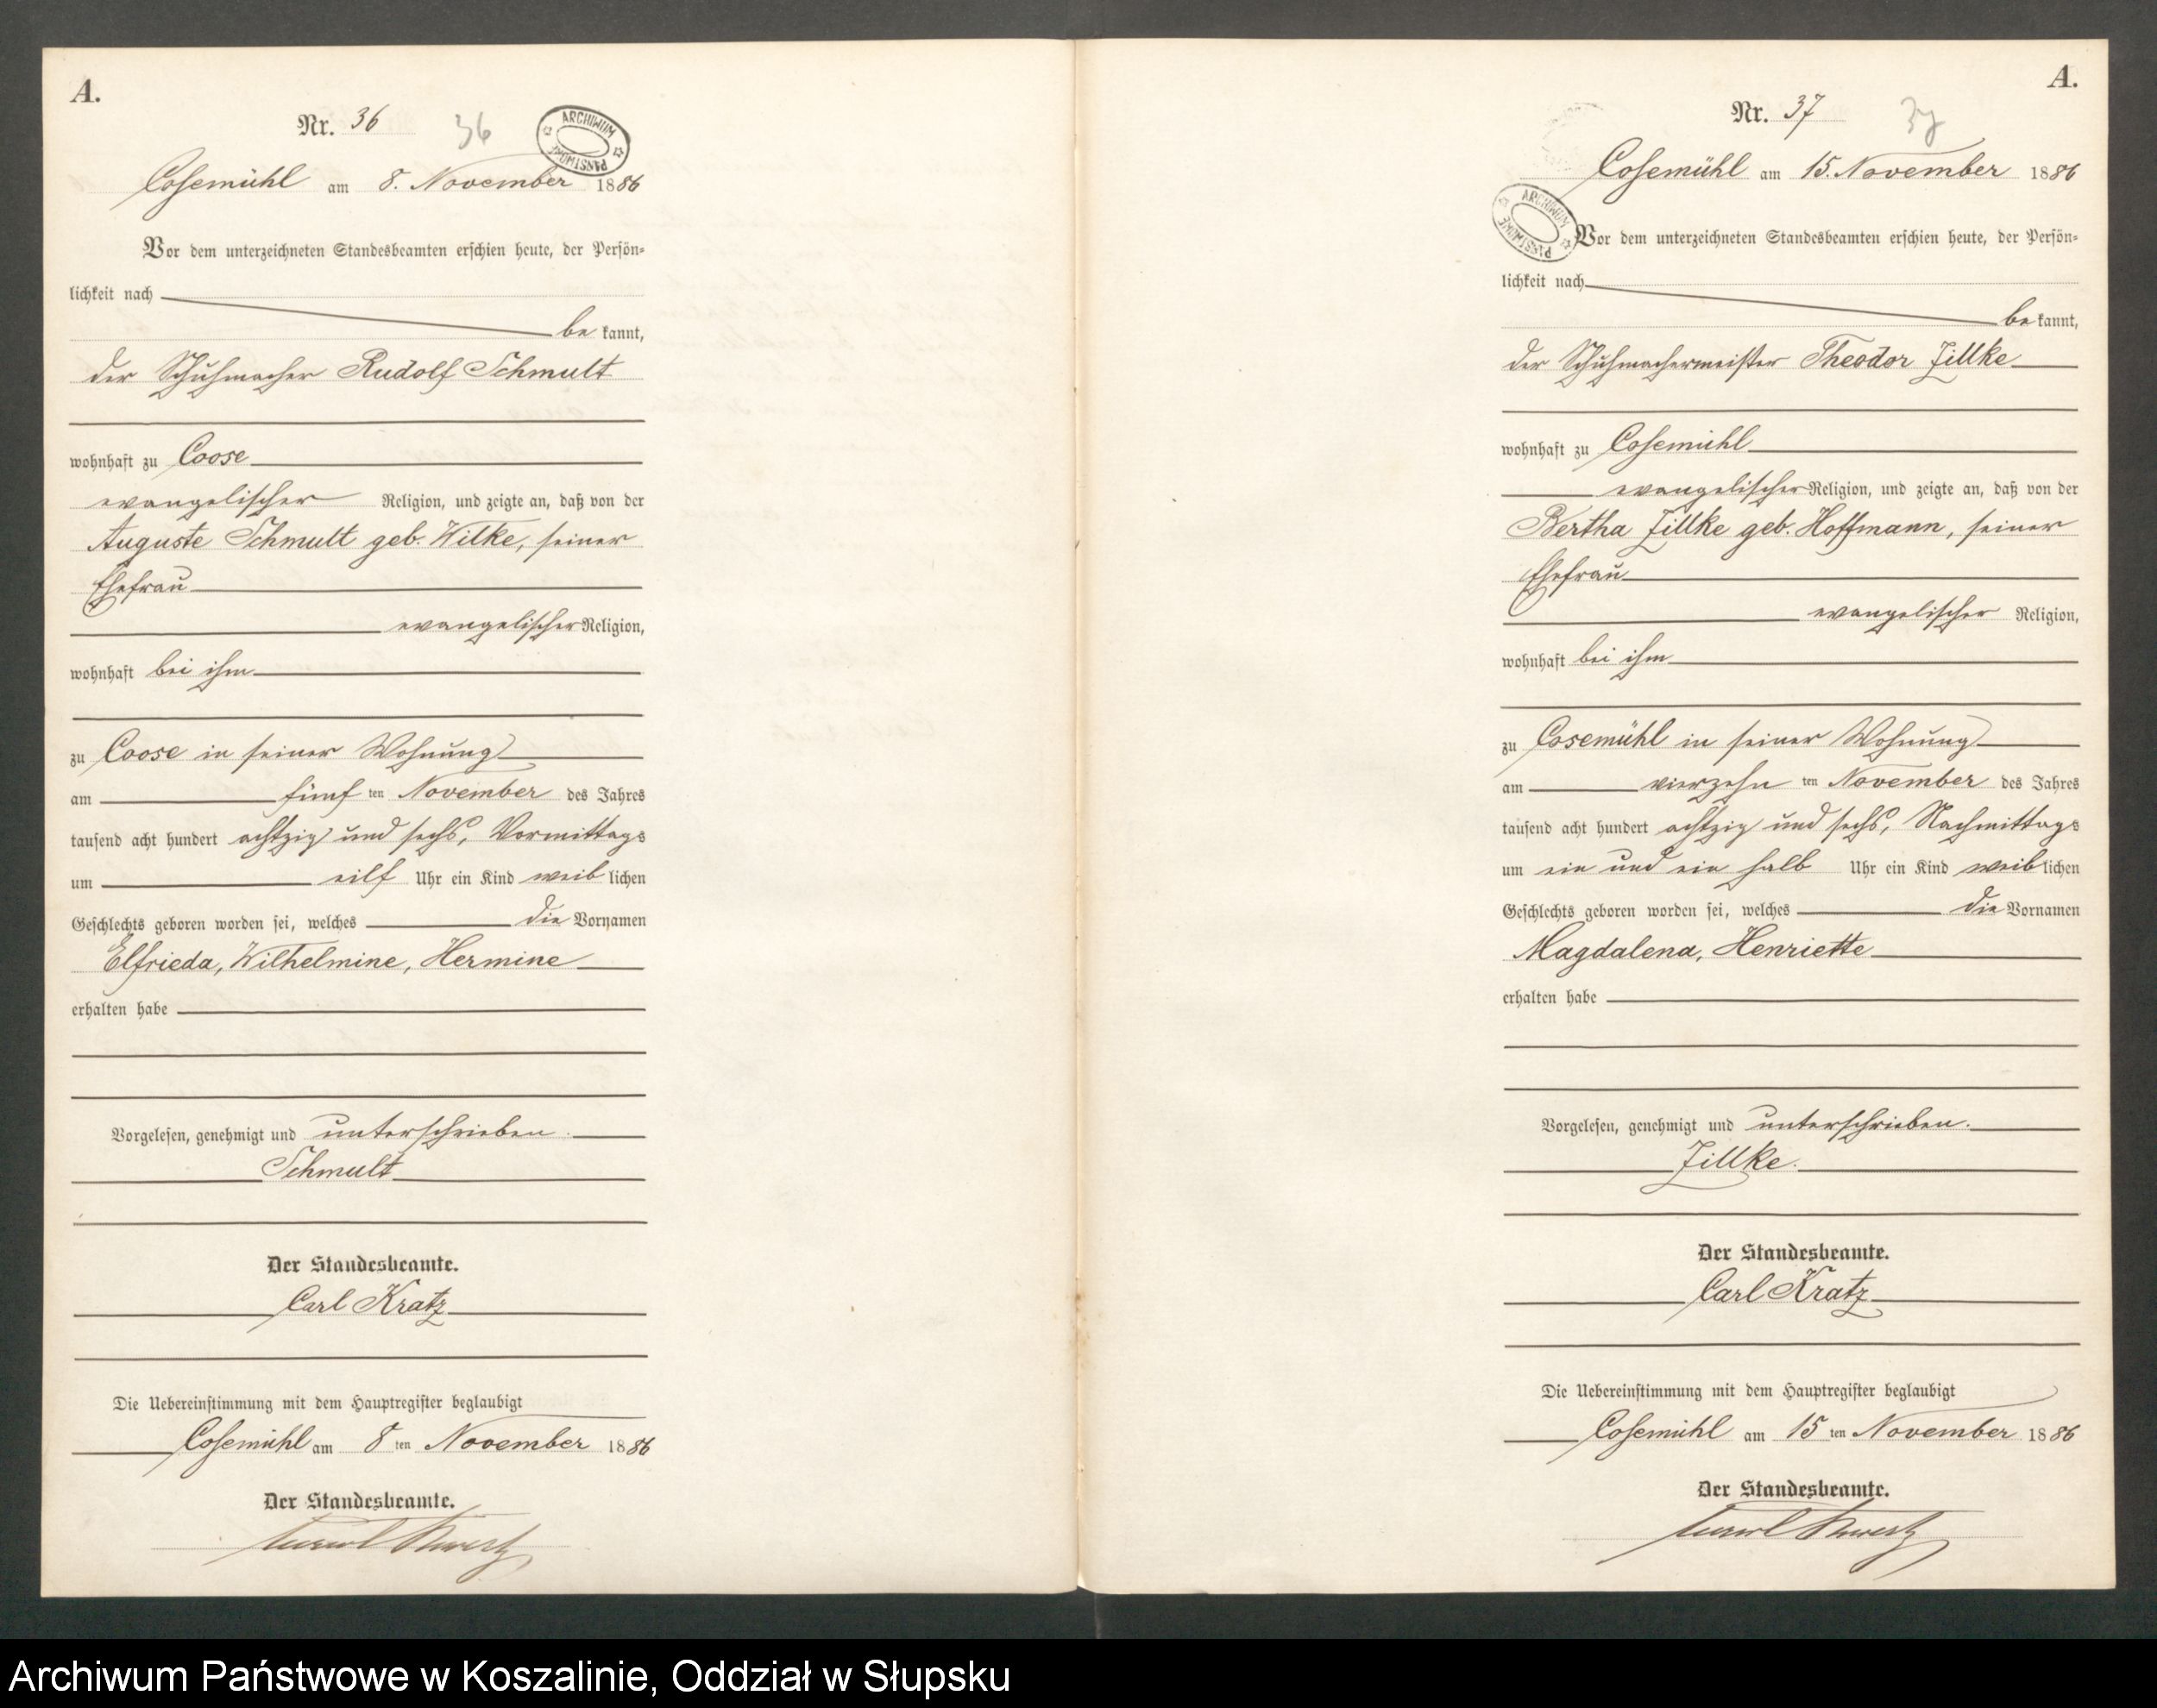 A.
Nr. 36
36
ARCHIWUM PAŃSTWOWE
Cosemühl am 8. November 1886
Vor dem unterzeichneten Standesbeamten erschien heute, der Persön-
lichkeit nach
be kannt,
der Schuhmacher Rudolf Schmult
wohnhaft zu Coose
evangelischer Religion, und zeigte an, daß von der
Auguste Schmult geb. Wilke, seiner
Ehefrau
evangelischer Religion,
wohnhaft bei ihm
zu Coose in seiner Wohnung
am fünf ten November des Jahres
tausend acht hundert achtzig und sechs, Vormittags
um eilf Uhr ein Kind weib lichen
Geschlechts geboren worden sei, welches die Vornamen
Elfrieda, Wilhelmine, Hermine
erhalten habe
Vorgelesen, genehmigt und unterschrieben.
Schmult
Der Standesbeamte.
Carl Kratz
Die Uebereinstimmung mit dem Hauptregister beglaubigt
Cosemühl am 8 ten November 1886
Der Standesbeamte.
Carl Kratz
A.
Nr. 37
37
ARCHIWUM PAŃSTWOWE
Cosemühl am 15. November 1886
Vor dem unterzeichneten Standesbeamten erschien heute, der Persön-
lichkeit nach
be kannt,
der Schuhmachermeister Theodor Zillke
wohnhaft zu Cosemühl
evangelischer Religion, und zeigte an, daß von der
Bertha Zillke geb. Hoffmann, seiner
Ehefrau
evangelischer Religion,
wohnhaft bei ihm
zu Cosemühl in seiner Wohnung
am vierzehn ten November des Jahres
tausend acht hundert achtzig und sechs, Nachmittags
um ein und ein halb Uhr ein Kind weib lichen
Geschlechts geboren worden sei, welches die Vornamen
Magdalena, Henriette
erhalten habe
Vorgelesen, genehmigt und unterschrieben.
Zillke.
Der Standesbeamte.
Carl Kratz
Die Uebereinstimmung mit dem Hauptregister beglaubigt
Cosemühl am 15 ten November 1886
Der Standesbeamte.
Carl Kratz
Archiwum Państwowe w Koszalinie, Oddział w Słupsku